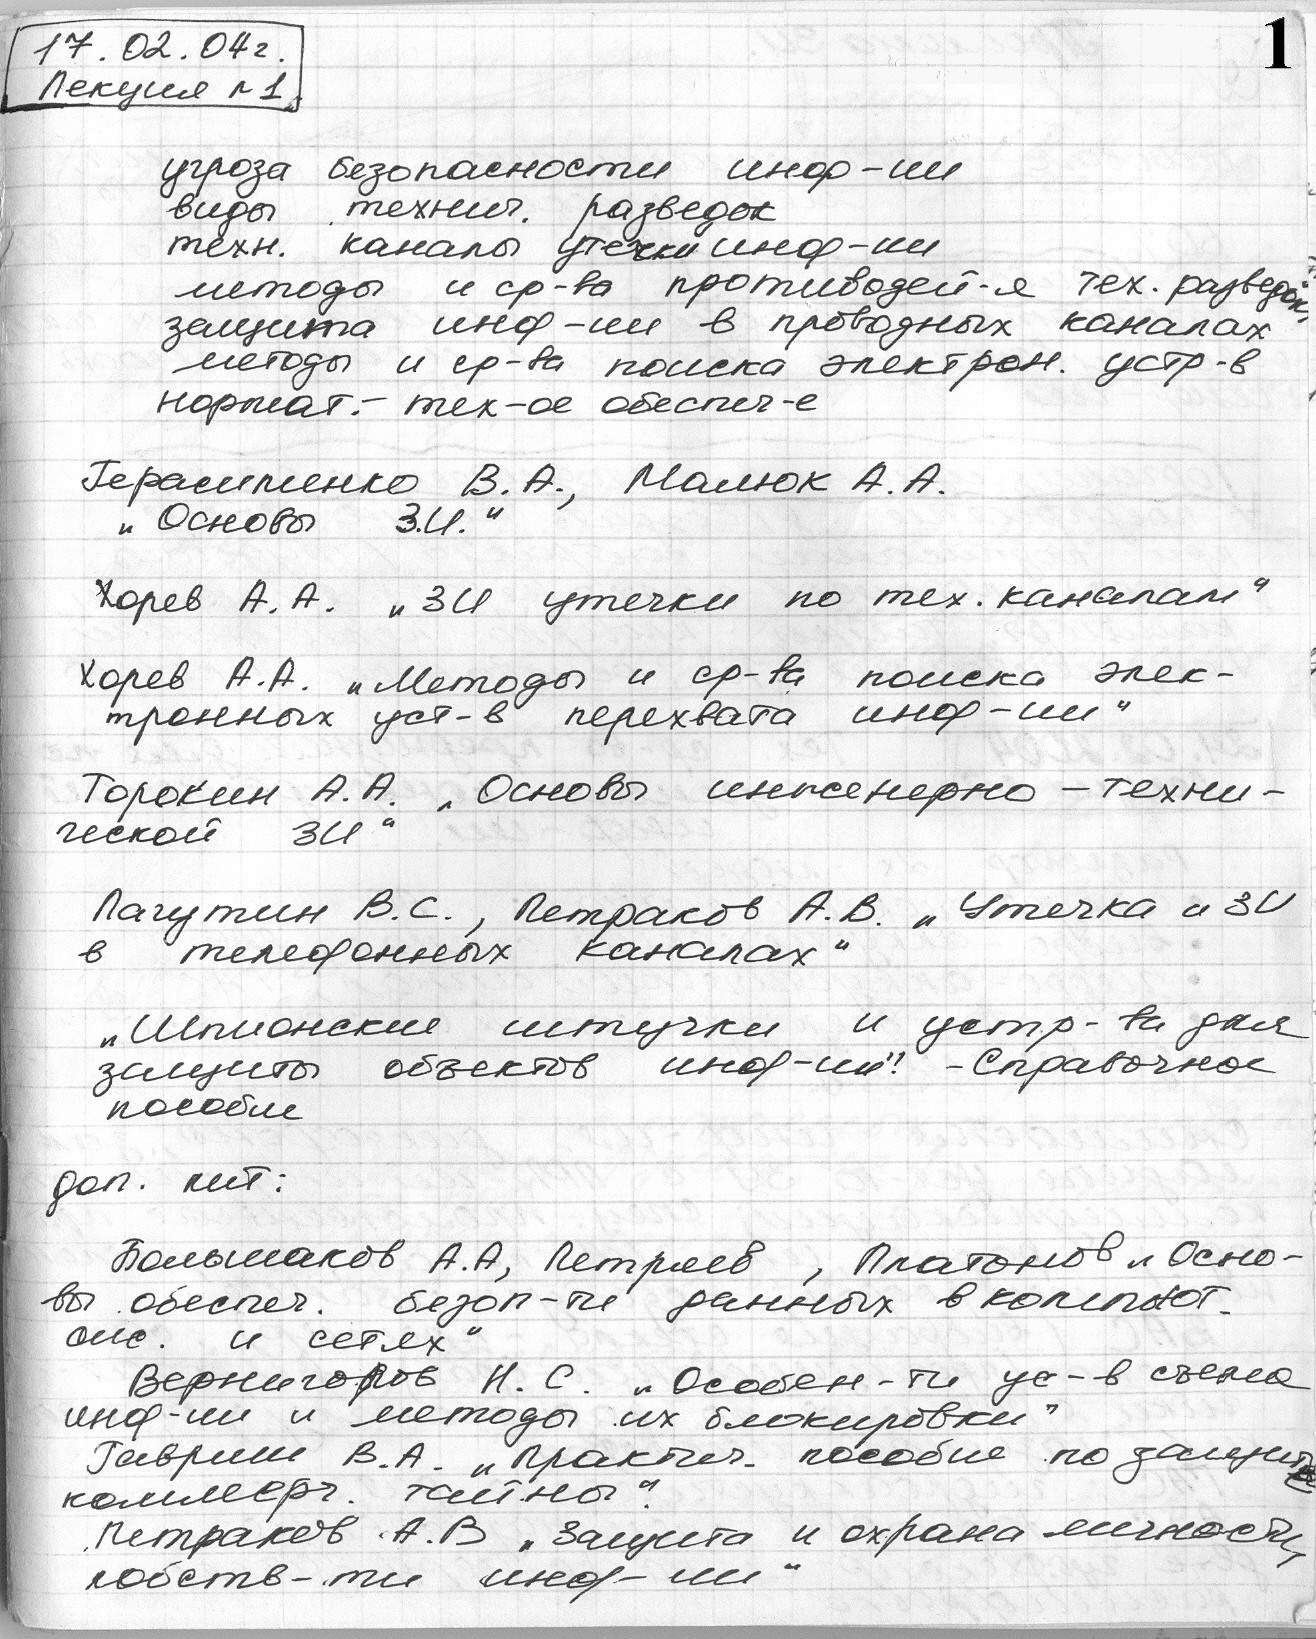 1
17.02.04г.
Лекция №1
угроза безопасности инф-ии
виды технич. разведок
техн. каналы утечки инф-ии
методы и ср-ва противодей-я тех. разведок,
защита инф-ии в проводных каналах
методы и ср-ва поиска электрон. устр-в
нормат.- тех-ое обеспеч-е
Герасименко В.А., Малюк А.А.
„Основы З.И."
Хорев А.А. „ЗИ утечки по тех. каналам"
Хорев А.А. „Методы и ср-ва поиска элек-
тронных уст-в перехвата инф-ии"
Торокин А.А. „Основы инженерно-техни-
ческой ЗИ"
Лагутин В.С., Петраков А.В. „Утечка и ЗИ
в телефонных каналах"
„Шпионские штучки и устр-ва для
защиты объектов инф-ии". - Справочное
пособие
доп. лит:
Большаков А.А, Петряев , Платонов „Осно-
вы обеспеч. безоп-ти данных в компьют.
сис. и сетях"
Вернигоров Н.С. „Особен-ти ус-в съема
инф-ии и методы их блокировки"
Гавриш В.А. „Практич. пособие по защите
коммерч. тайны".
Петраков А.В „Защита и охрана личности,
собств-ти инф-ии"